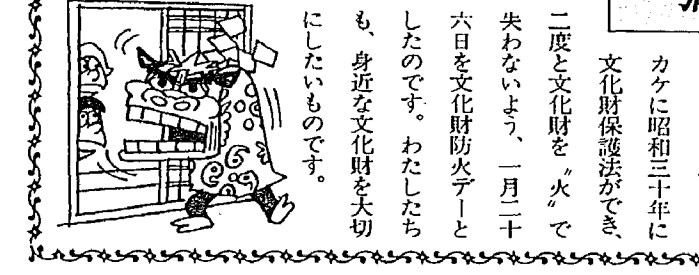 カケに昭和三十年に
文化財保護法ができ、
二度と文化財を〝火〟で
失わないよう、一月二十
六日を文化財防火デーと
したのです。わたしたち
も、身近な文化財を大切
にしたいものです。